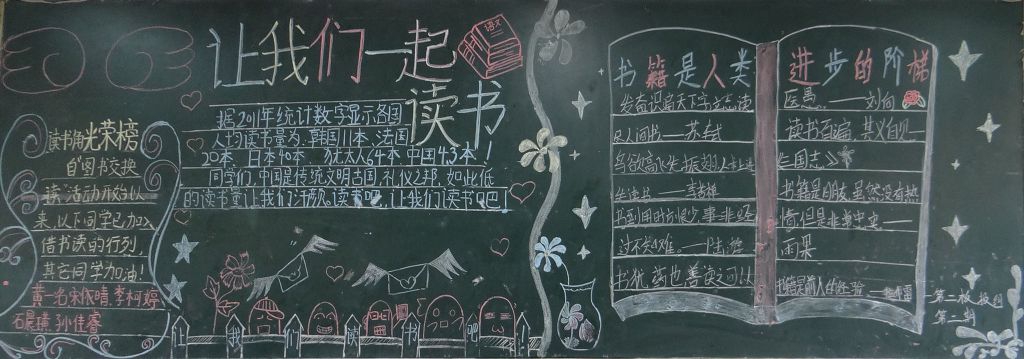 让我们一起
读书
语文
据2011年统计数字显示各国
人均读书量为：韩国11本、法国
20本、日本40本、犹太人64本 中国4.5本！
同学们，中国是传统文明古国，礼仪之邦，如此低
的读书量让我们汗颜。读书吧，让我们读书吧！
读书角光荣榜
自“图书交换
读”活动开始以
来，以下同学已加入
借书读的行列，
其它同学加油！
黄一名 李柯婷
石晨璜 孙佳睿
让我们读书吧
书籍是人类
发奋识遍天下字，立志读
尽人间书——苏轼
鸟欲高飞先振翅，人求上进
先读书——李若禅
书到用时方恨少，事非经
过不知难。——陆游
书犹药也，善读之可以
进步的阶梯
医愚。——刘向
读书百遍，其义自见——
三国志》
书籍是朋友，虽然没有热
情，但是非常忠实——
雨果
第二板报刊
第二期